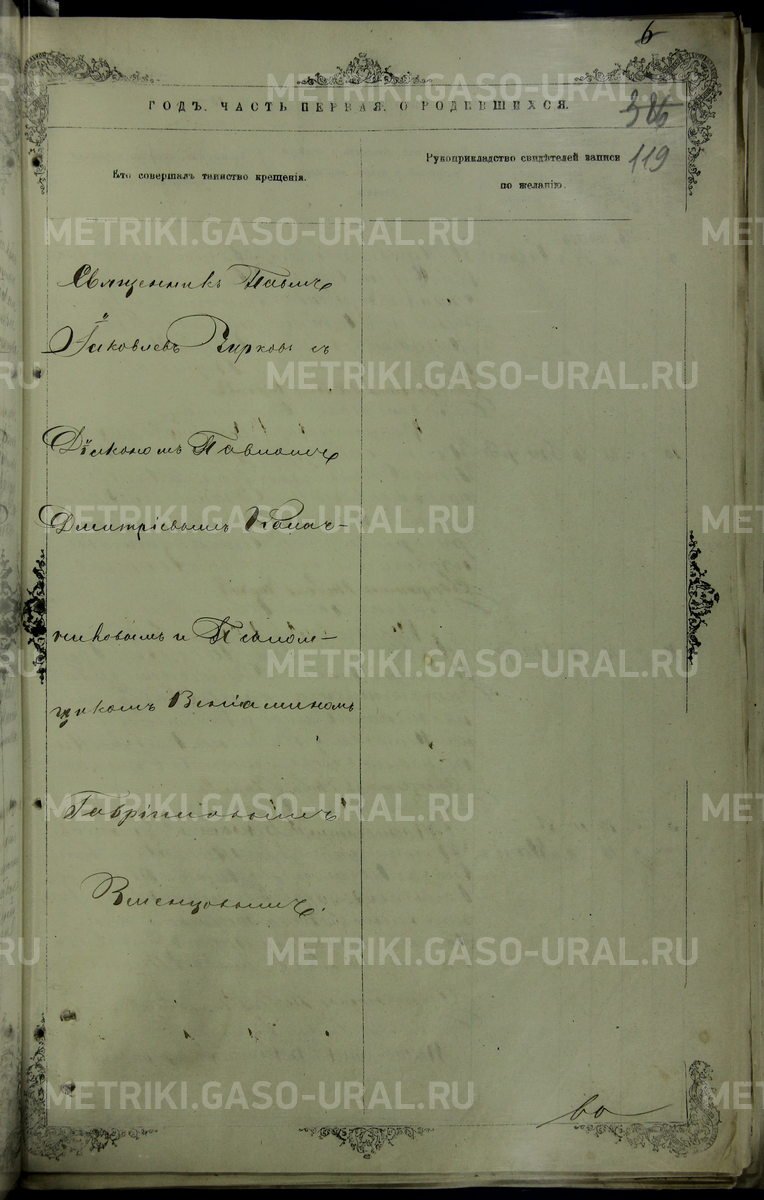 6
ГОДЪ. ЧАСТЬ ПЕРВАЯ. О РОДИВШИХСЯ.
386
119
Кто совершалъ таинство крещенія.
Рукоприкладство свидѣтелей записи
по желанію.
Священникъ Павелъ
Іаковлевъ съ
Діакономъ Павломъ
Дмитріевымъ Колач-
никовымъ и Псалом-
щикомъ Веніаминомъ
Гавріиловымъ
METRIKI.GASO-URAL.RU